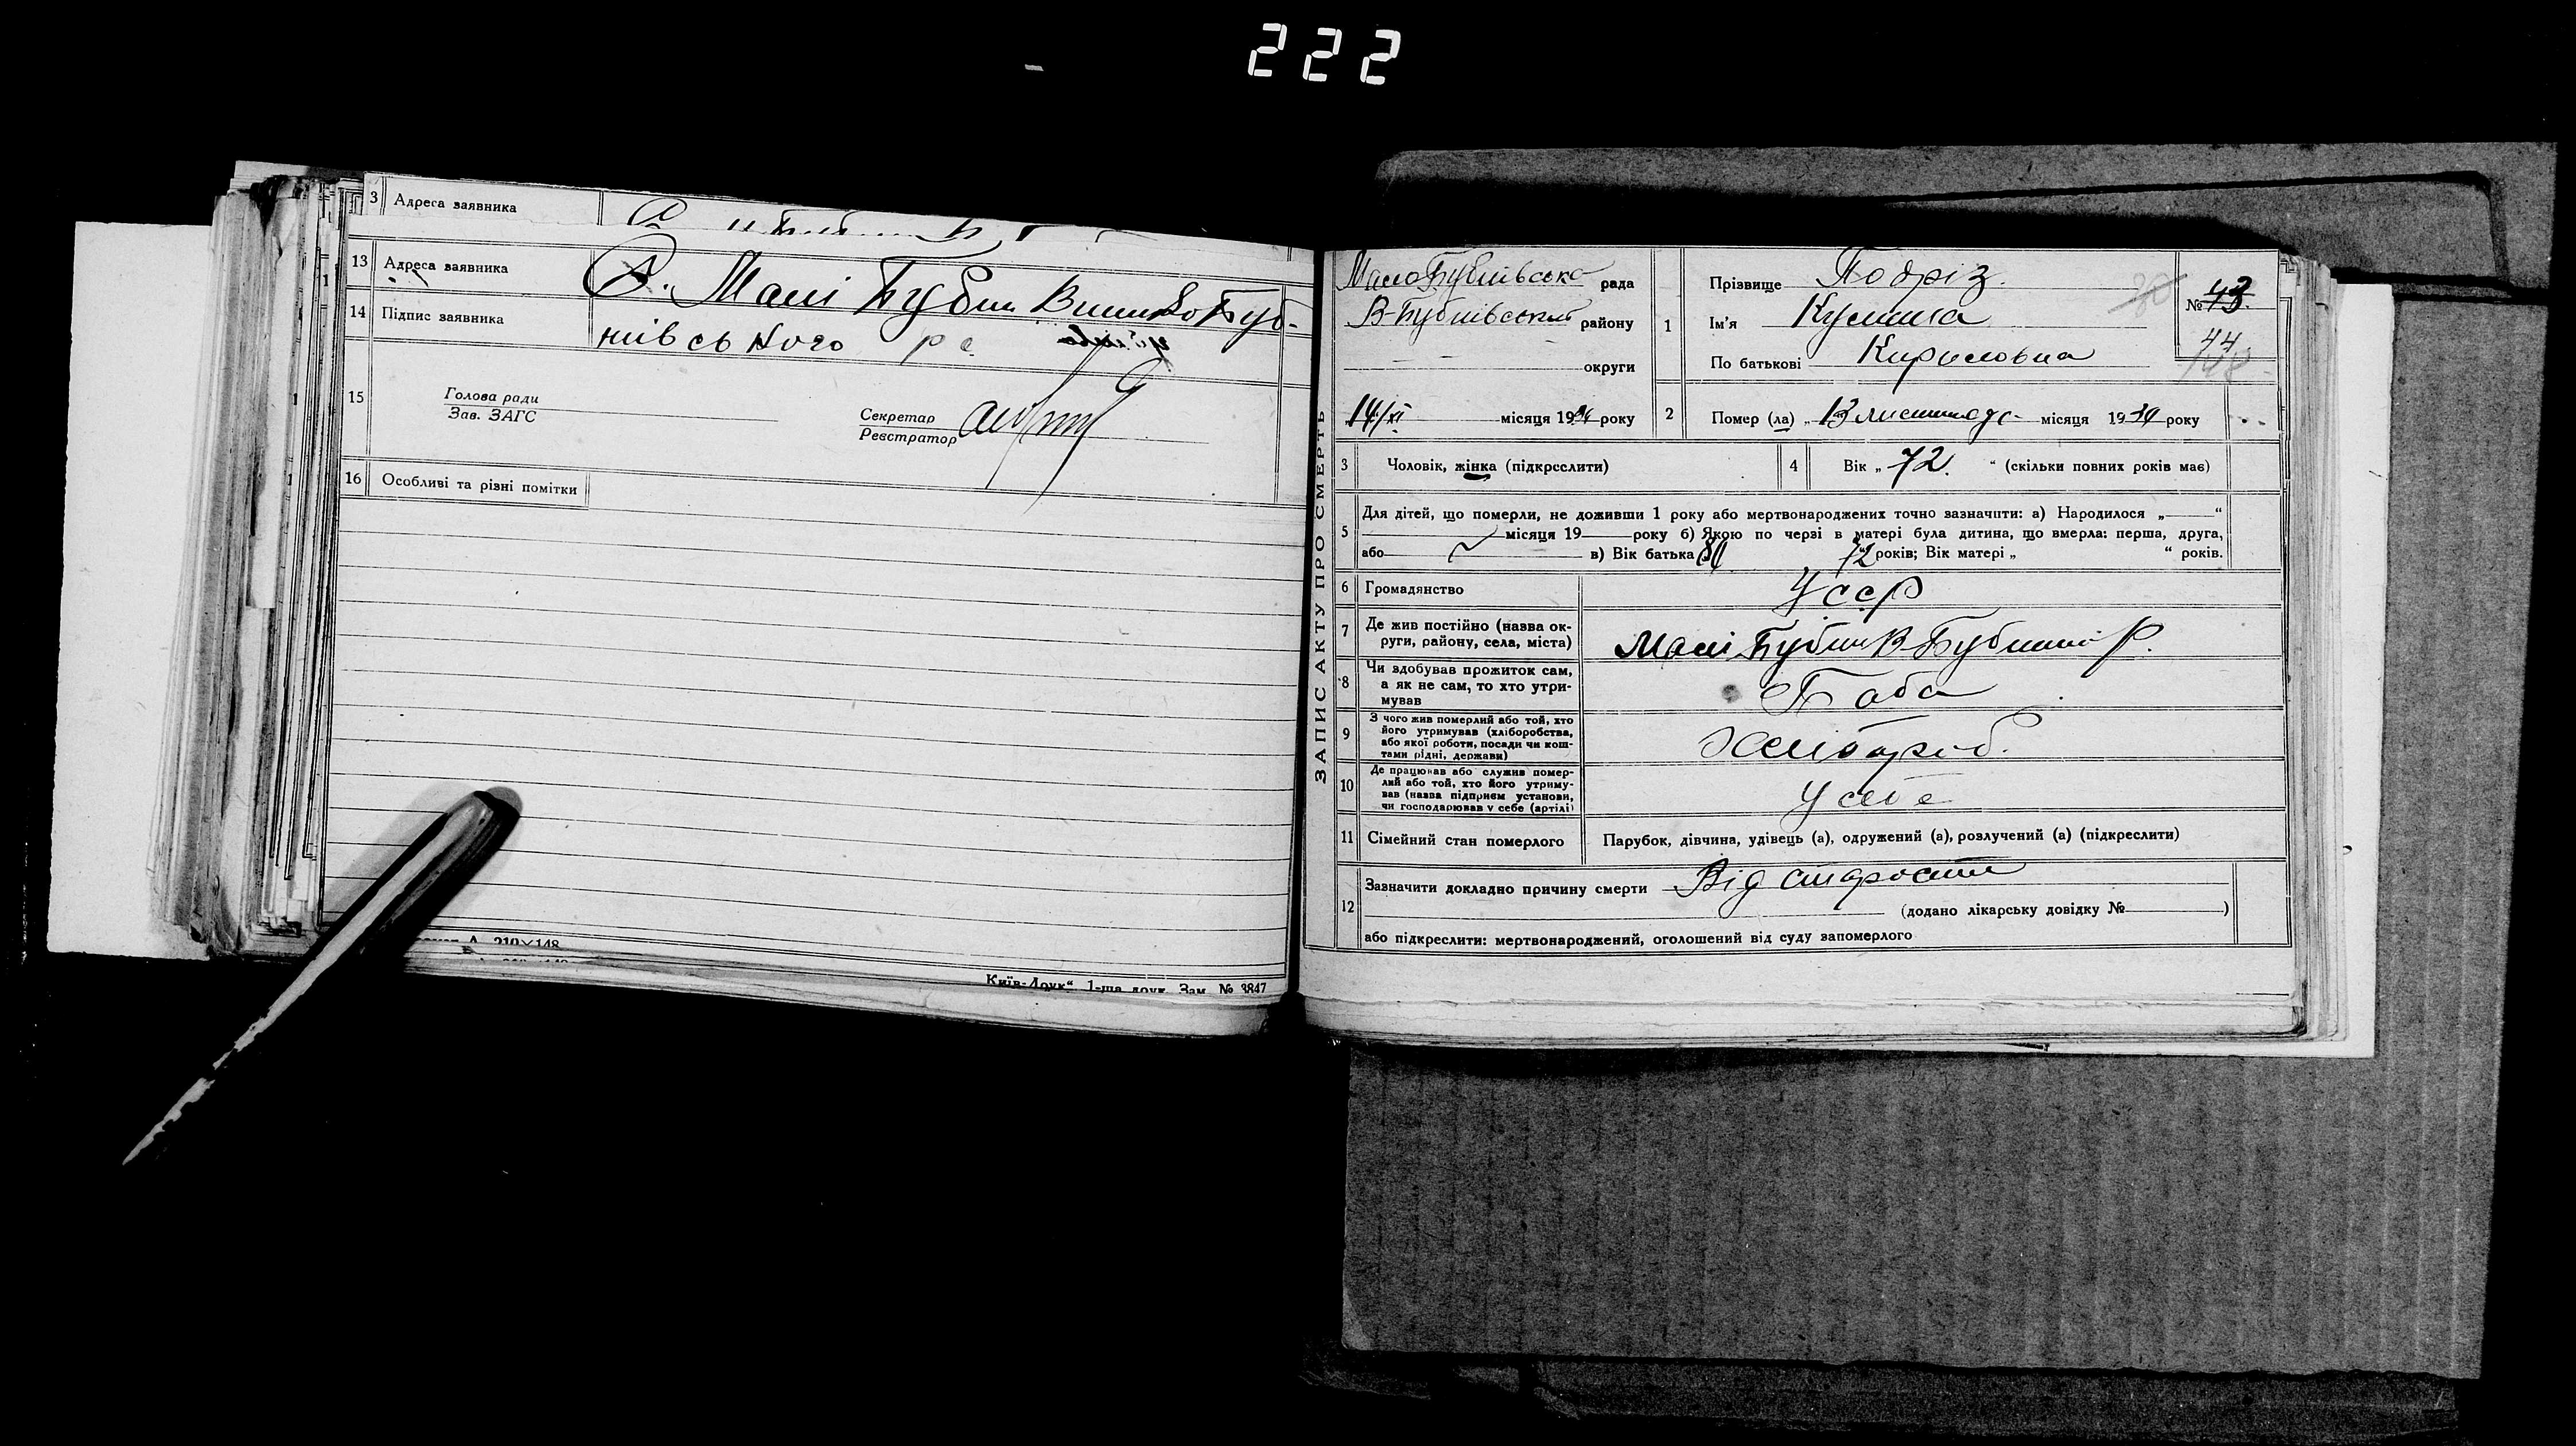 222
3 Адреса заявника
13 Адреса заявника С. Малі Бубни Вишньо Буб-
14 Підпис заявника нівського р
15 Голова ради
Зав. ЗАГС
Секретар
Реєстратор
16 Особливі та різні помітки
А 210×148
Київ-Друк“ 1-ша друк. Зам. № 3847
ЗАПИС АКТУ ПРО СМЕРТЬ
МалоБубнівська рада
В-Бубнівський району
округи
14/XI місяця 1934 року
1 Прізвище Подріз.
Ім'я Кулина
По батькові Кириловна
№ 43
44
2 Помер (ла) „ 13 листопада місяця 1934 року
3 Чоловік, жінка (підкреслити)
4 Вік „ 72. “ (скільки повних років має)
5 Для дітей, що померли, не доживши 1 року або мертвонароджених точно зазначити: а) Народилося „ “
місяця 19 року б) Якою по черзі в матері була дитина, що вмерла: перша, друга,
або в) Вік батька 72 років; Вік матері „ “ років.
6 Громадянство УССР
7 Де жив постійно (назва ок-
руги, району, села, міста) Малі Бубни В-Бубнини Р.
8 Чи здобував прожиток сам,
а як не сам, то хто утри-
мував Баба
9 З чого жив померлий або той, хто
його утримував (хліборобства,
або якої роботи, посади чи кош-
тами рідні, держави) Хлібороб.
10 Де працював або служив помер-
лий або той, хто його утриму-
вав (назва підприєм установи,
чи господарював у себе (артілі) У себе
11 Сімейний стан померлого Парубок, дівчина, удівець (а), одружений (а), розлучений (а) (підкреслити)
12 Зазначити докладно причину смерти Від старости
(додано лікарську довідку № )
або підкреслити: мертвонароджений, оголошений від суду запомерлого